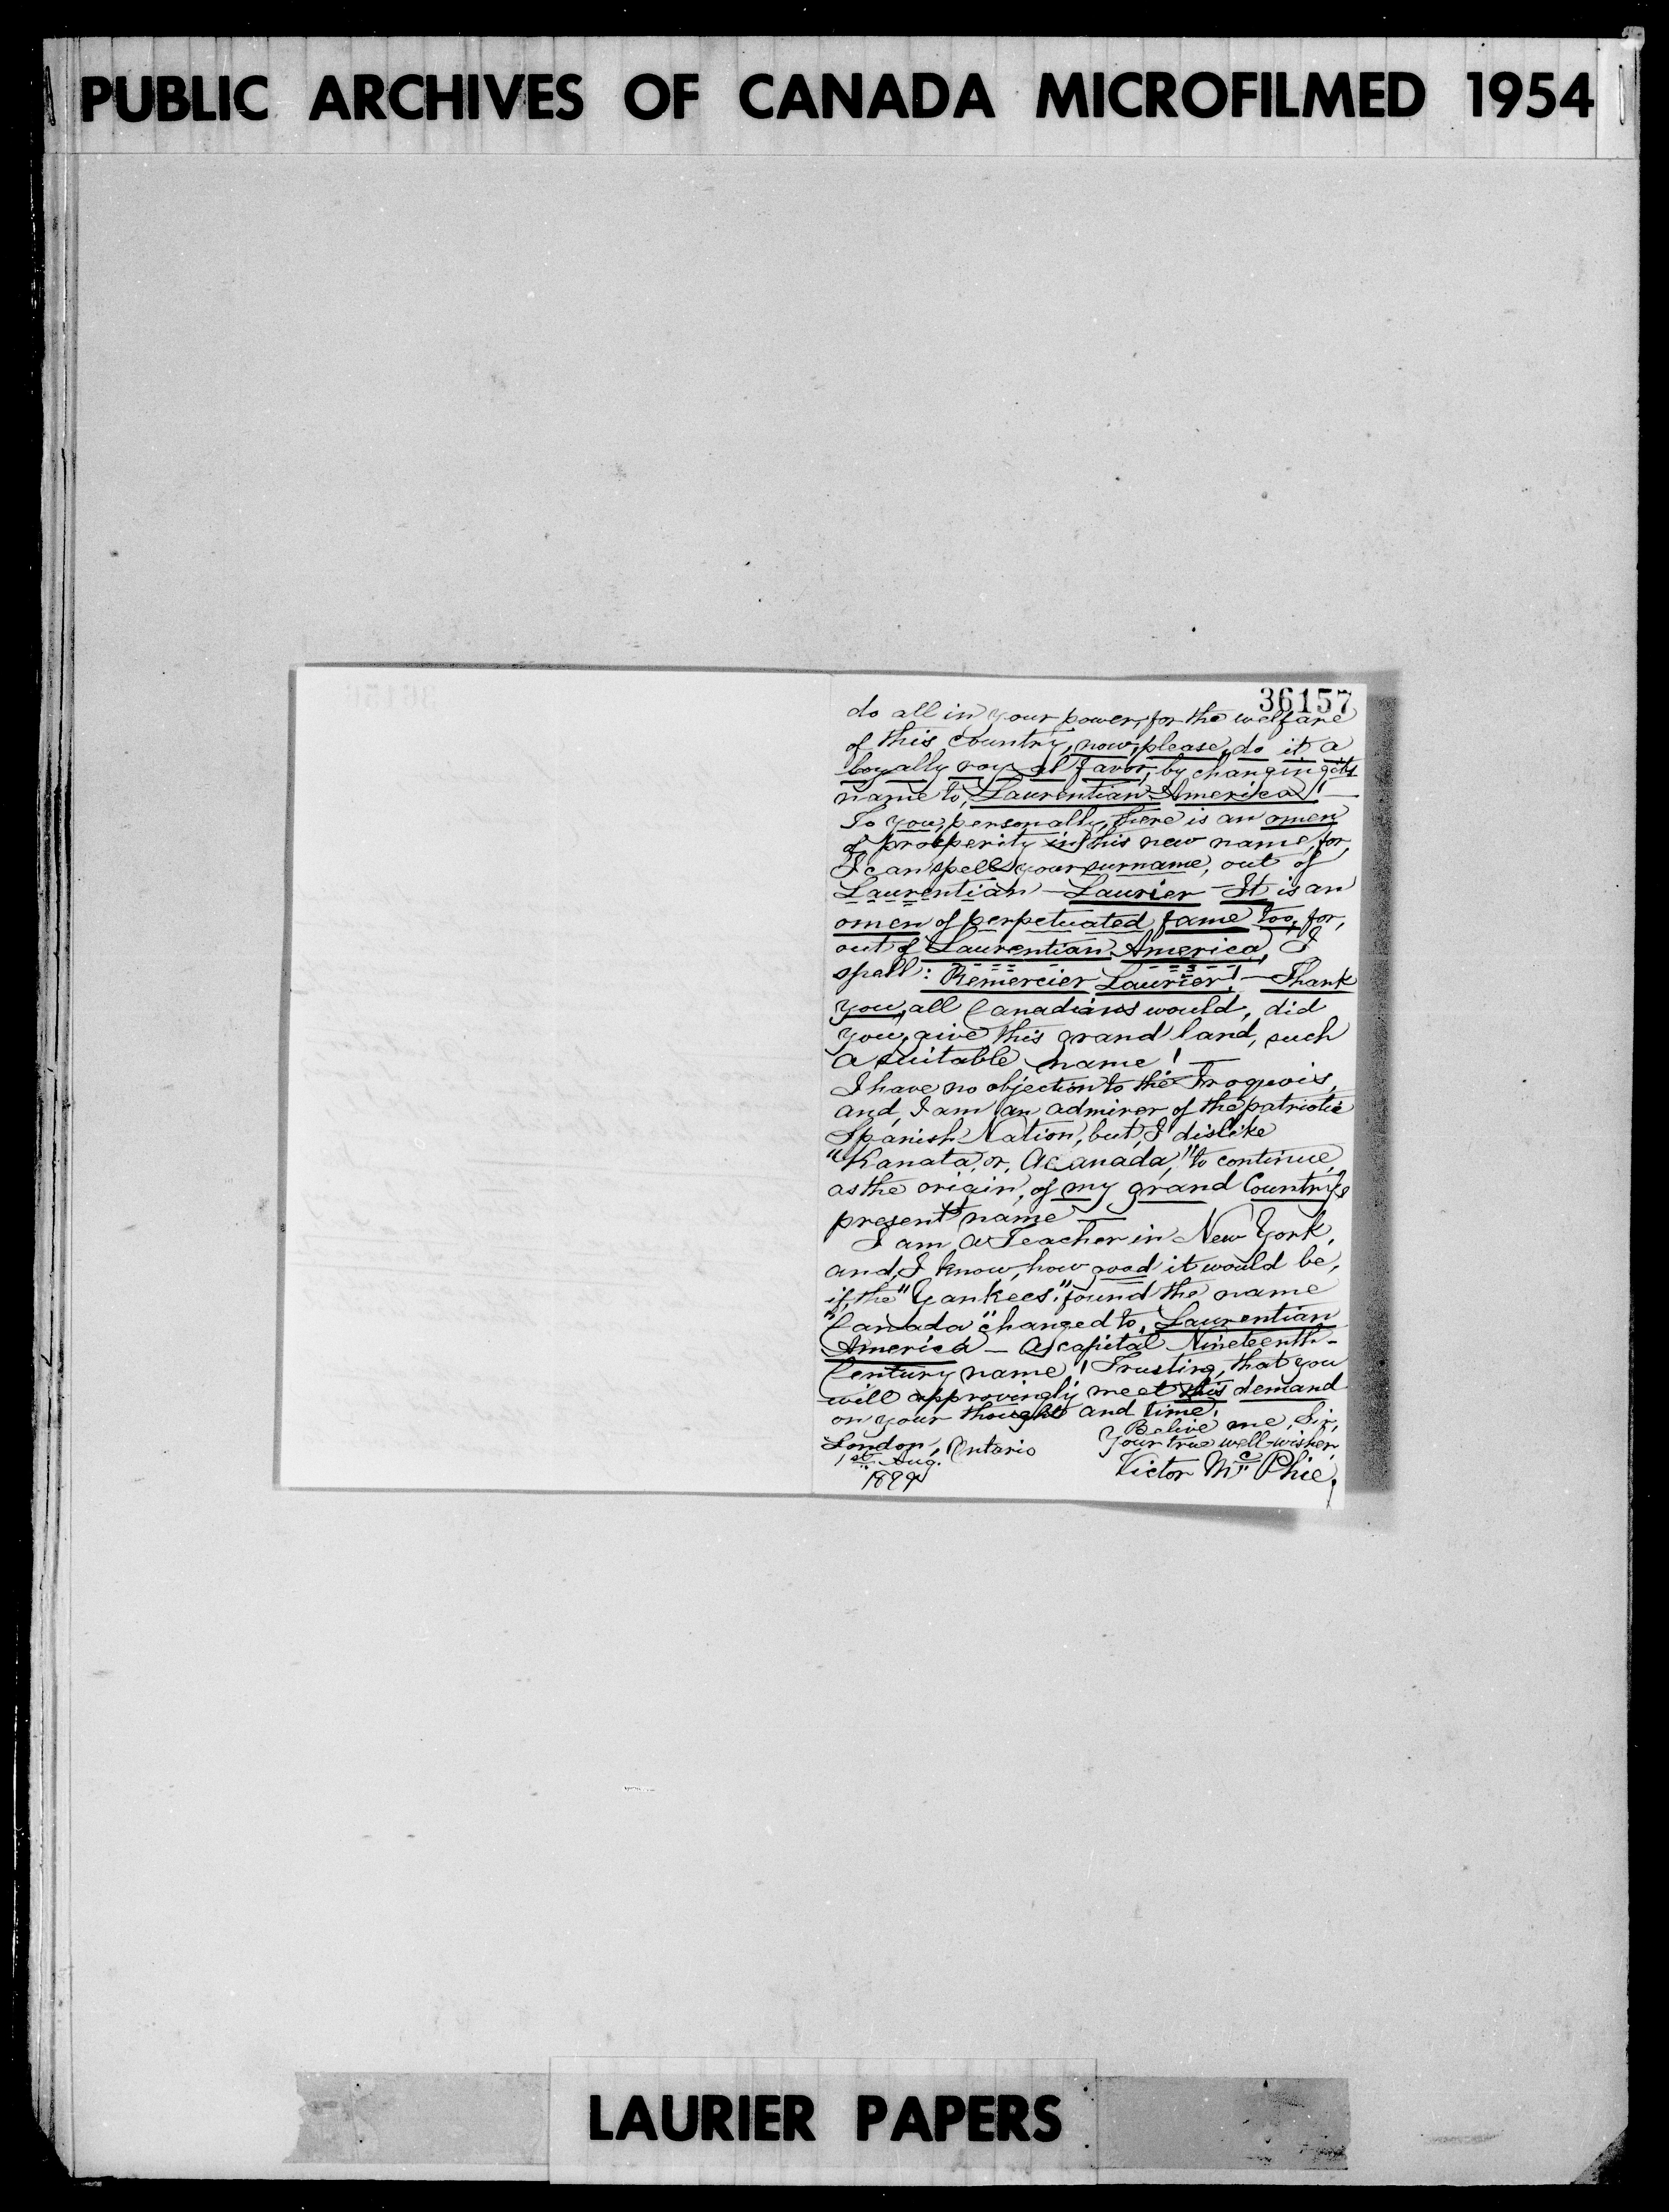 PUBLIC ARCHIVES OF CANADA MICROFILMED 1954
36157
do all in your power, for the welfare
of this country, now, please, do it a
loyally royal favor, by changing its
name to, Laurentian-America! —
To you, personally, there is an omen
of prosperity in this new name, for,
I can spell your surname, out of
Laurentian — Laurier — It is an
omen of perpetuated fame too, for,
out of Laurentian-America, I
spell: Remercier Laurier! — Thank
you, all Canadians would, did
you, give this grand land, such
a suitable name! —
I have no objection to the Iroquois,
and, I am, an admirer of the patriotic
Spanish Nation, but, I dislike
"Kanata, or, Acanada," to continue
as the origin, of my grand Country's
present name —
I am a Teacher in New York,
and, I know, how good it would be,
if, the "Yankees", found the name
"Canada" changed to, Laurentian
America — A capital Nineteenth-
Century name! Trusting, that you
will approvingly meet this demand
on your thought and time,
Belive me, Sir,
Your true well-wisher,
London, Ontario
1st Aug.
1899
Victor Mc Phie,
LAURIER PAPERS